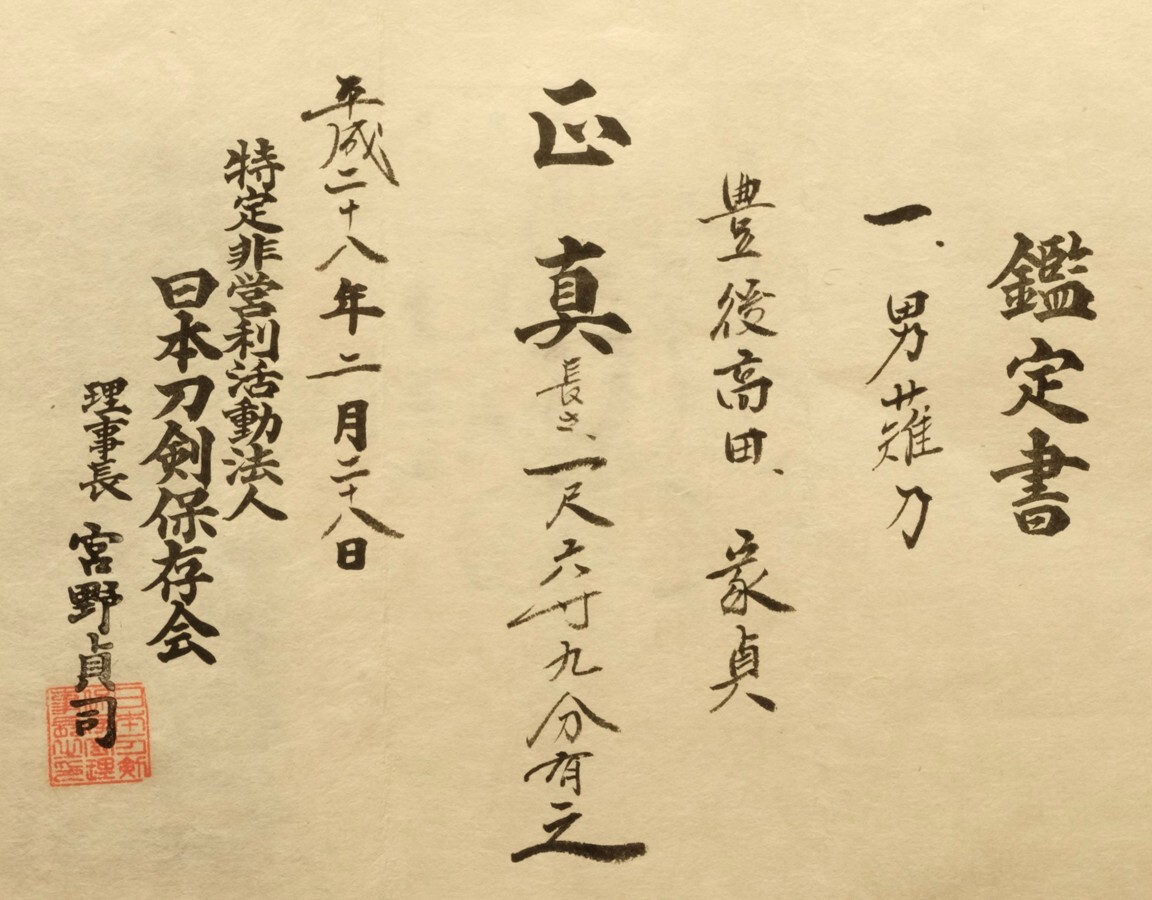 鑑定書
一、男薙刀
豊後高田、家貞
正真 長さ、一尺六寸九分有之
平成二十八年二月二十八日
特定非営利活動法人
日本刀剣保存会
理事長 宮野貞司